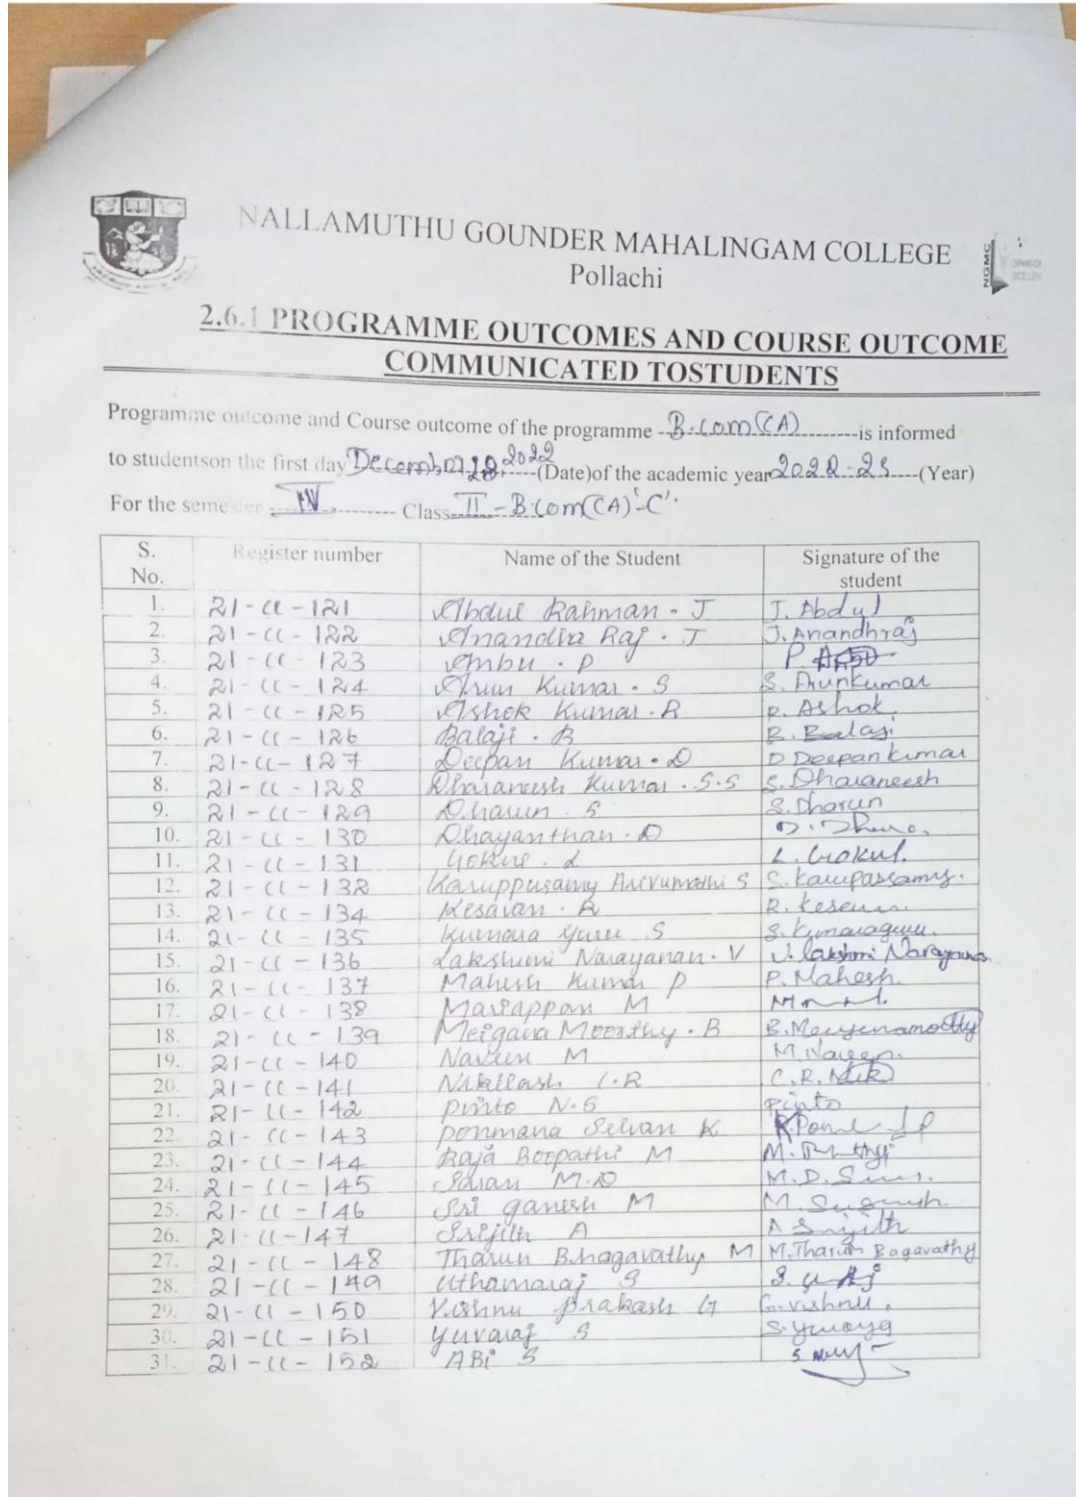 NALLAMUTHU GOUNDER MAHALINGAM COLLEGE
Pollachi
NGMC
2.6.1 PROGRAMME OUTCOMES AND COURSE OUTCOME
COMMUNICATED TOSTUDENTS
Programme outcome and Course outcome of the programme B.com(CA) is informed
to studentson the first day December 2022 (Date)of the academic year 2022-23 (Year)
For the semester IV Class II-B.com(CA)'C'
S. No. Register number Name of the Student Signature of the student
1. 21-CC-121 Abdul Rahman. J J. Abdul
2. 21-CC-122 Anandha Raj. J J. Anandhraj
3. 21-CC-123 Anbu. P P.
4. 21-CC-124 Arun Kumar. S S. Arunkumar
5. 21-CC-125 Ashok Kumar. R R. Ashok
6. 21-CC-126 Balaji. B B. Balaji
7. 21-CC-127 Deepan Kumar. D D Deepan kumar
8. 21-CC-128 Dharaneesh Kumar. S.S S. Dharaneesh
9. 21-CC-129 Dharun. S S. Dharun
10. 21-CC-130 Dhayanthan. D
11. 21-CC-131 Gokul. L L. Gokul.
12. 21-CC-132 Karuppusamy Arivumathi S
13. 21-CC-134 Kesavan. R R.
14. 21-CC-135 Kumara Guru S S. Kumaraguru.
15. 21-CC-136 Lakshmi Narayanan. V V. Lakshmi Narayanan
16. 21-CC-137 Mahesh Kumar P P. Mahesh.
17. 21-CC-138 Mariappan M
18. 21-CC-139 Meigana Moorthy. B B.
19. 21-CC-140 Naveen M M. Naveen.
20. 21-CC-141 Nikilash C.R C.R.
21. 21-CC-142 Pinto N.S Pinto
22. 21-CC-143 Ponmana Selvan K
23. 21-CC-144 Raja Boopathi M M.
24. 21-CC-145 Saran M.D M.D.
25. 21-CC-146 Sri ganesh M M.
26. 21-CC-147 Srijith A A Srijith
27. 21-CC-148 Tharun Bhagavathy M M. Tharun Bagavathy
28. 21-CC-149 Uthamaraj S S.
29. 21-CC-150 Vishnu Prakash G G. Vishnu.
30. 21-CC-151 Yuvaraj S S.
31. 21-CC-152 ABi S S.